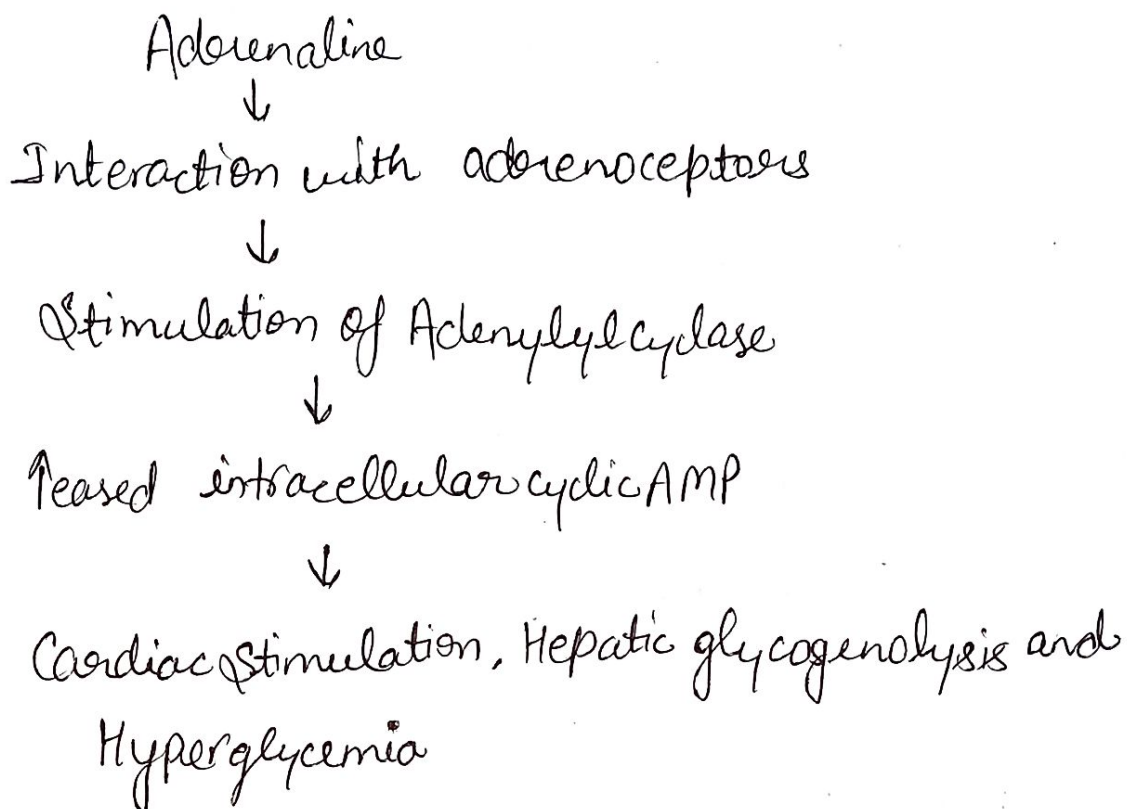 Adrenaline
↓
Interaction with adrenoceptors
↓
Stimulation of Adenylylcyclase
↓
↑eased intracellular cyclic AMP
↓
Cardiac Stimulation, Hepatic glycogenolysis and
Hyperglycemia